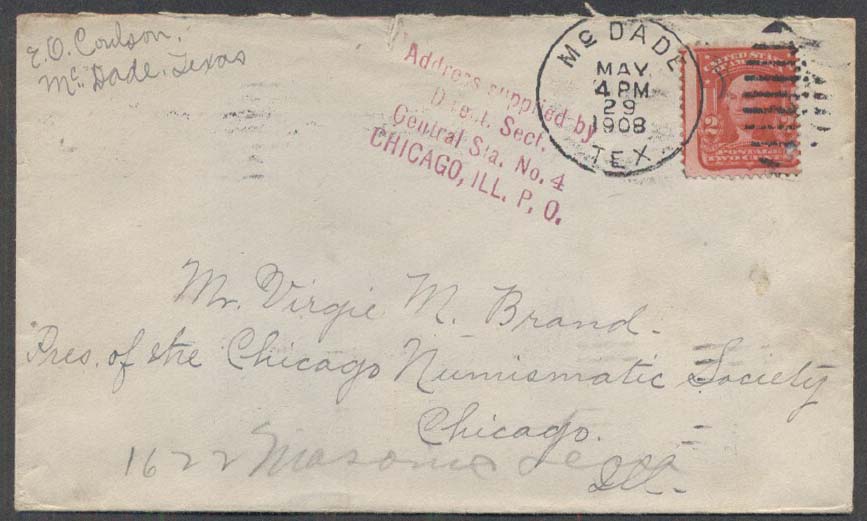 E. O. Coulson.
McDade. Texas
Address supplied by
Direct. Sect.
Central Sta. No. 4
CHICAGO, ILL. P. O.
McDADE
MAY
4 PM
29
1908
TEX.
2 2
POSTAGE
TWO CENTS
Mr. Virgie M. Brand.
Pres. of the Chicago Numismatic Society
Chicago.
Ill.
1622 Masonic Tem